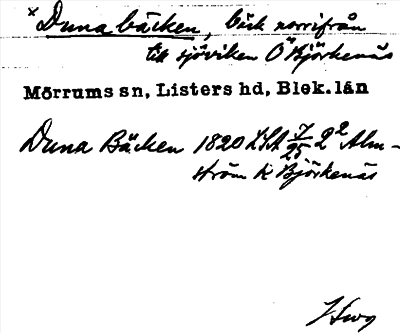 × Duna bäcken, bäck norrifrån
till sjöviken Ö Björkenäs
Mörrums sn, Listers hd, Blek. län
Duna Bäcken 1820 LSA 7/25 2² Alm-
ström K Björkenäs